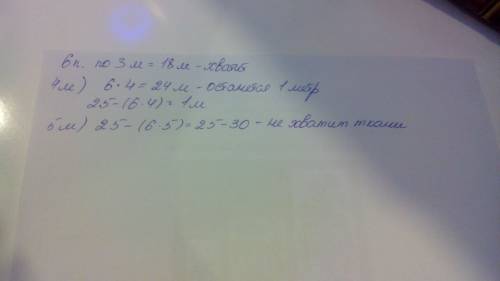 6п. по 3 м = 18 м - хватит
4 м) 6·4 = 24 м - останется 1 метр
25-(6·4) = 1 м
5 м) 25-(6·5) = 25-30 - не хватит ткани